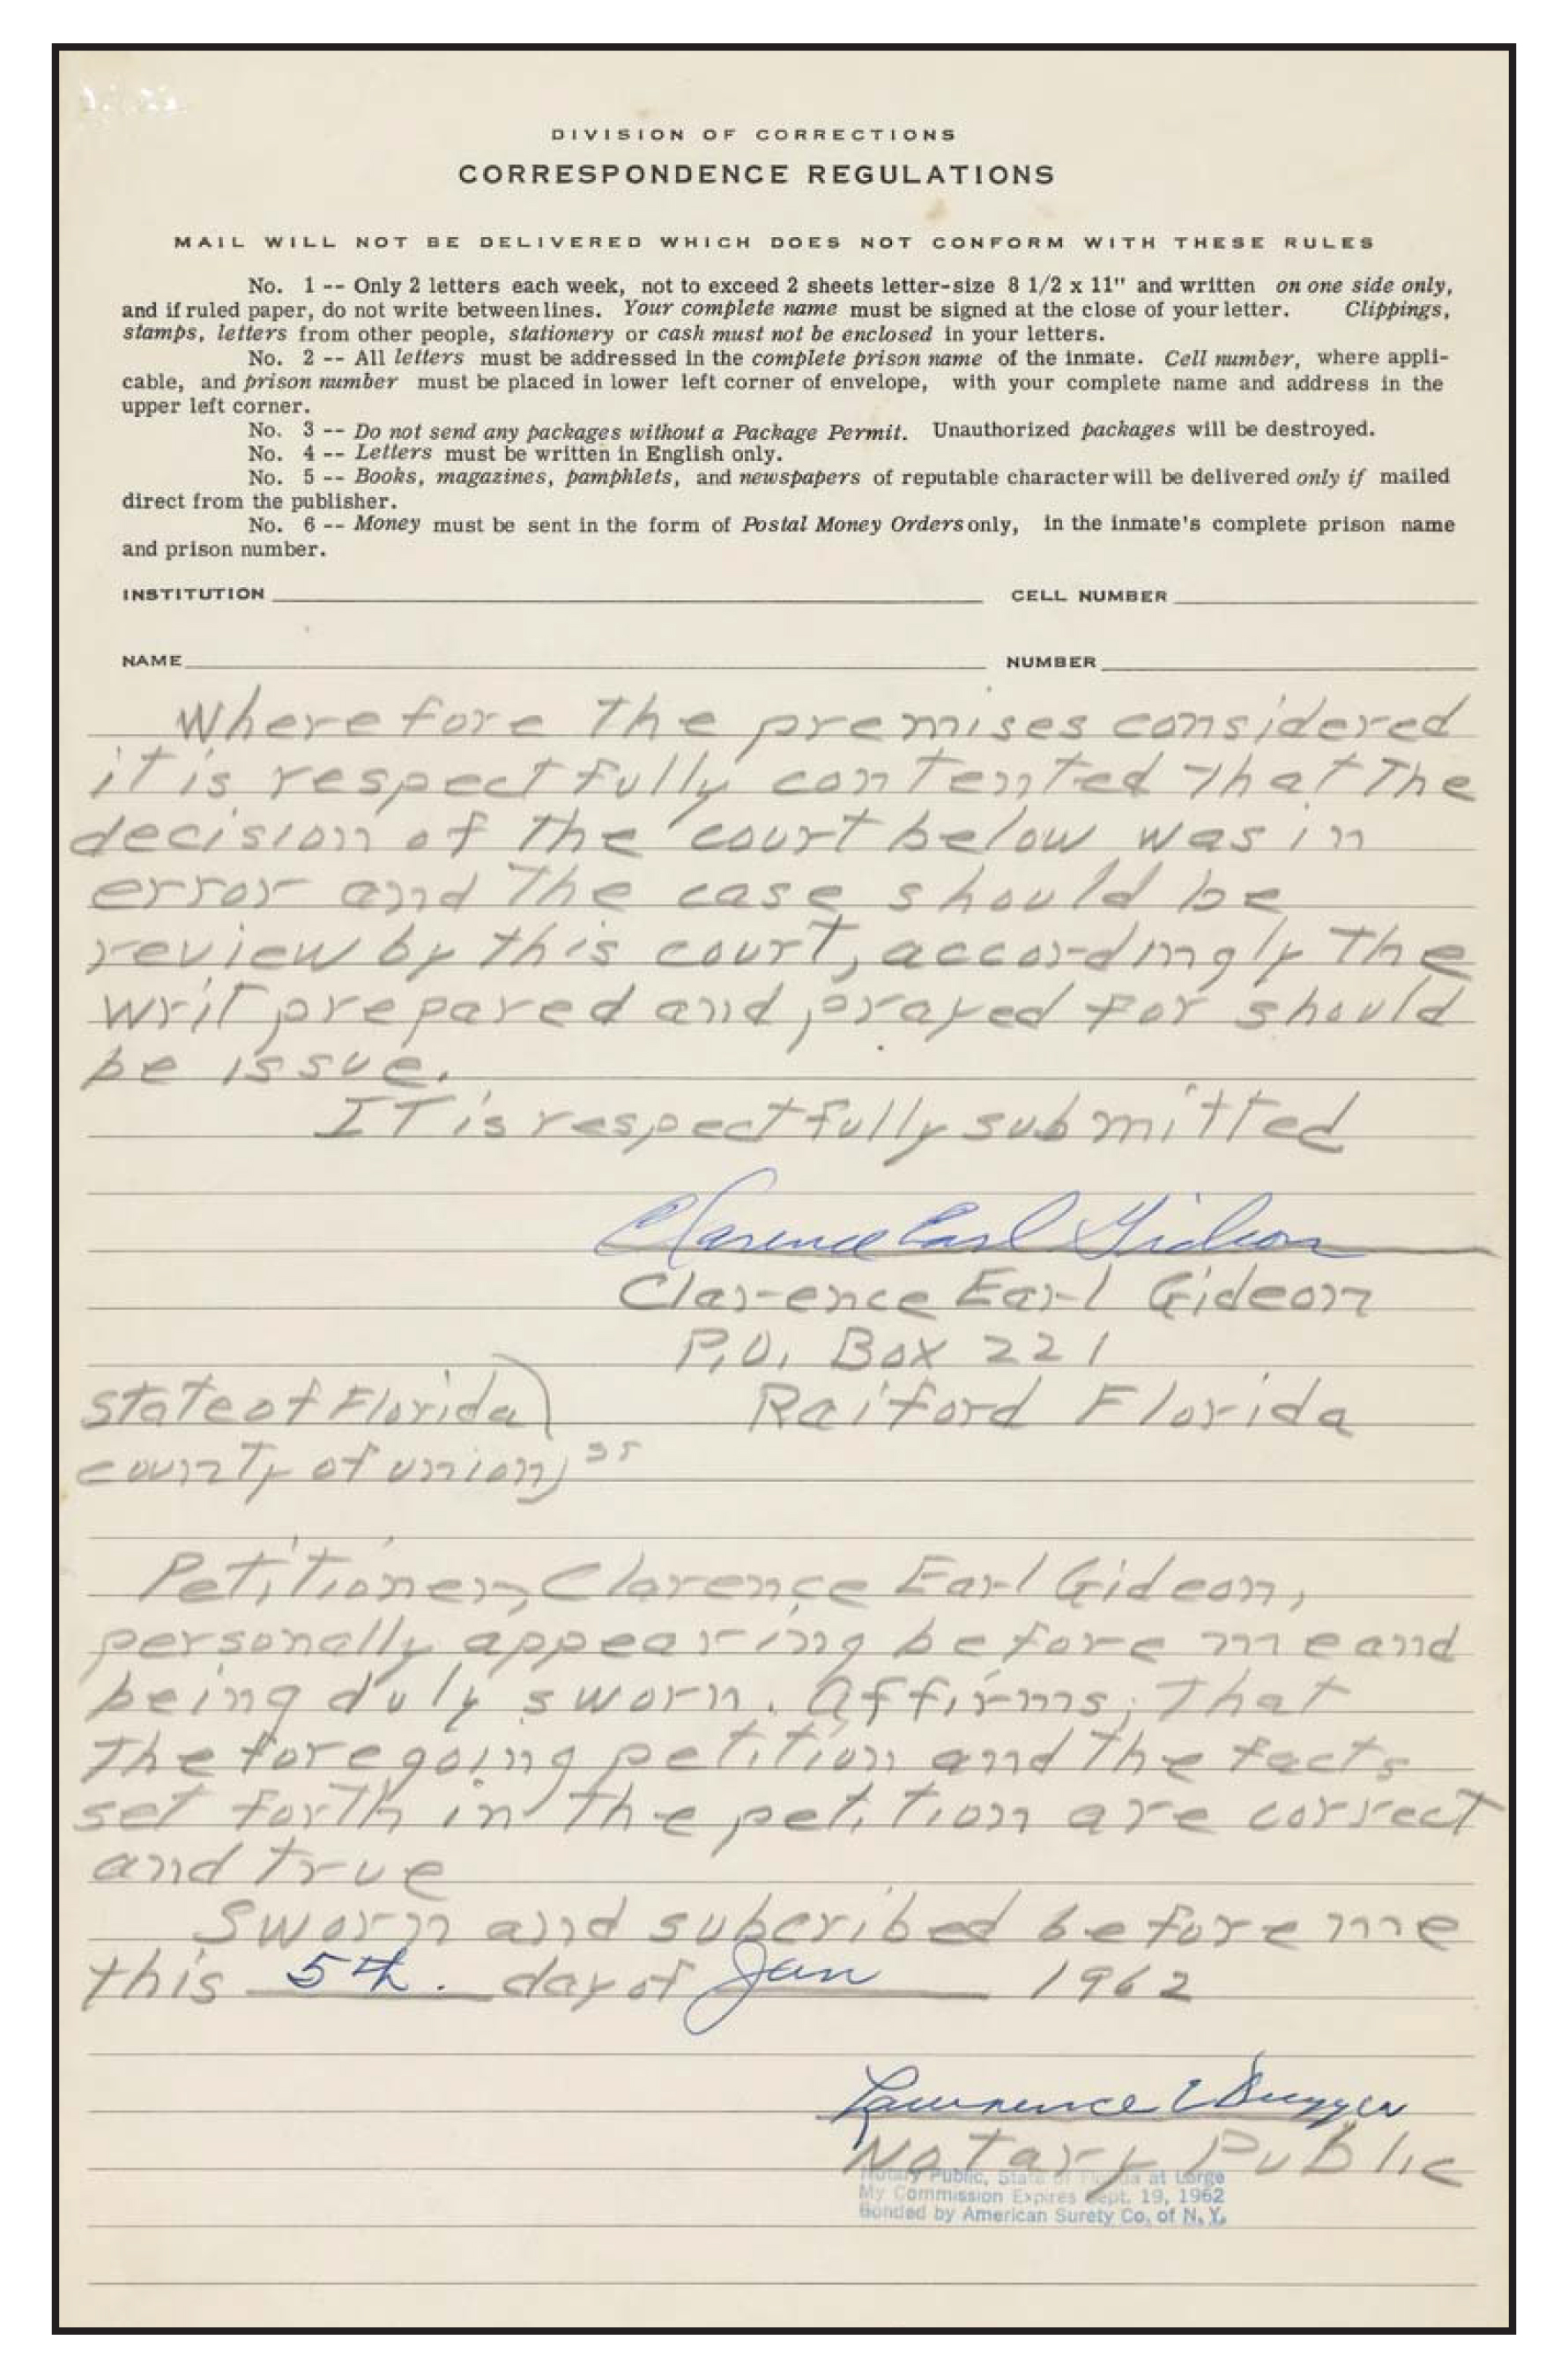 DIVISION OF CORRECTIONS
CORRESPONDENCE REGULATIONS
MAIL WILL NOT BE DELIVERED WHICH DOES NOT CONFORM WITH THESE RULES
No. 1 -- Only 2 letters each week, not to exceed 2 sheets letter-size 8 1/2 x 11" and written on one side only,
and if ruled paper, do not write between lines. Your complete name must be signed at the close of your letter. Clippings,
stamps, letters from other people, stationery or cash must not be enclosed in your letters.
No. 2 -- All letters must be addressed in the complete prison name of the inmate. Cell number, where appli-
cable, and prison number must be placed in lower left corner of envelope, with your complete name and address in the
upper left corner.
No. 3 -- Do not send any packages without a Package Permit. Unauthorized packages will be destroyed.
No. 4 -- Letters must be written in English only.
No. 5 -- Books, magazines, pamphlets, and newspapers of reputable character will be delivered only if mailed
direct from the publisher.
No. 6 -- Money must be sent in the form of Postal Money Orders only, in the inmate's complete prison name
and prison number.
INSTITUTION CELL NUMBER
NAME NUMBER
Wherefore the premises considered
it is respectfully contented that the
decision of the court below was in
error and the case should be
review by this court, accordingly the
writ prepared and prayed for should
be issue.
IT is respectfully submitted
Clarence Earl Gideon
Clarence Earl Gideon
P.O. Box 221
state of Florida) Raiford Florida
county of union) ss
Petitioner, Clarence Earl Gideon,
personally appearing before me and
being duly sworn. Affirms; that
the foregoing petition and the facts
set forth in the petition are correct
and true
Sworn and subcribed before me
this 5th. day of Jan 1962
Lawrence
Notary Public
Notary Public, State of Florida at Large
My Commission Expires Sept. 19, 1962
Bonded by American Surety Co. of N. Y.